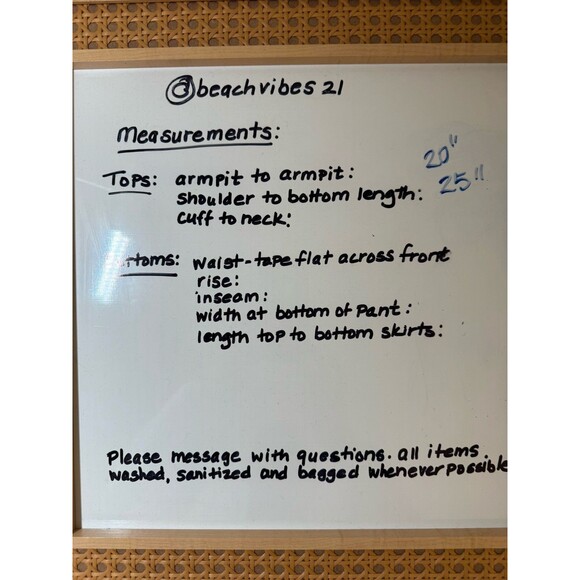 @beachvibes 21
Measurements:
Tops: armpit to armpit: 20"
Shoulder to bottom length: 25"
Cuff to neck:
Bottoms: waist-tape flat across front
rise:
inseam:
width at bottom of Pant:
length top to bottom skirts:
Please message with questions. all items.
washed, sanitized and bagged whenever possible